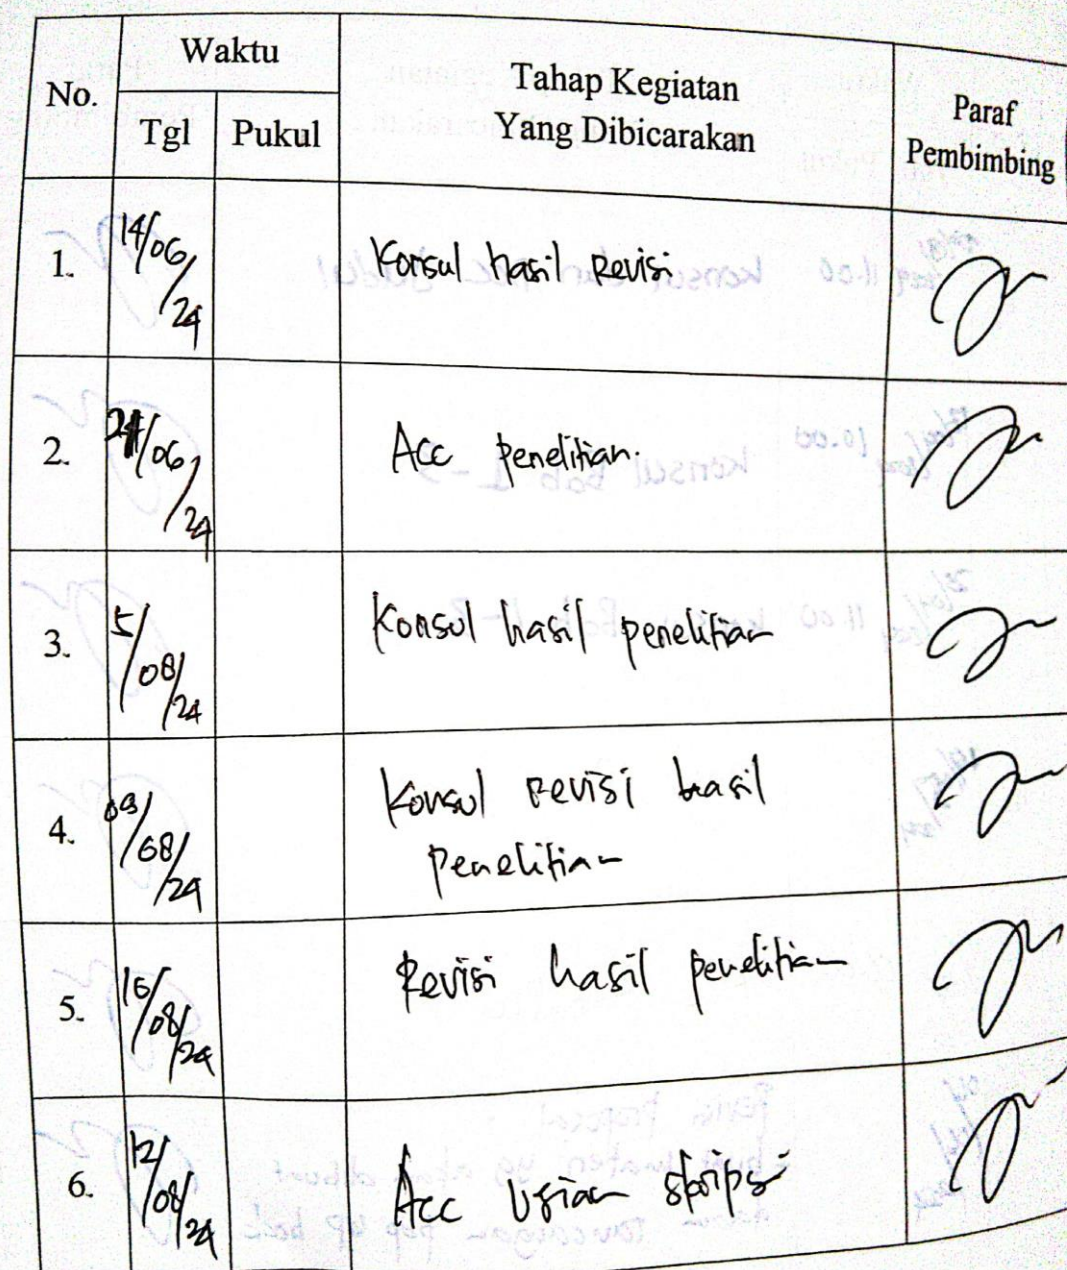 No. Waktu Tahap Kegiatan Yang Dibicarakan Paraf Pembimbing
Tgl Pukul
1. 14/06/24 Konsul hasil Revisi
2. 24/06/24 Acc penelitian.
3. 5/08/24 Konsul hasil penelitian
4. 09/08/24 Konsul revisi hasil
penelitian
5. /08/24 Revisi hasil penelitian
6. 12/08/24 Acc Ujian skripsi